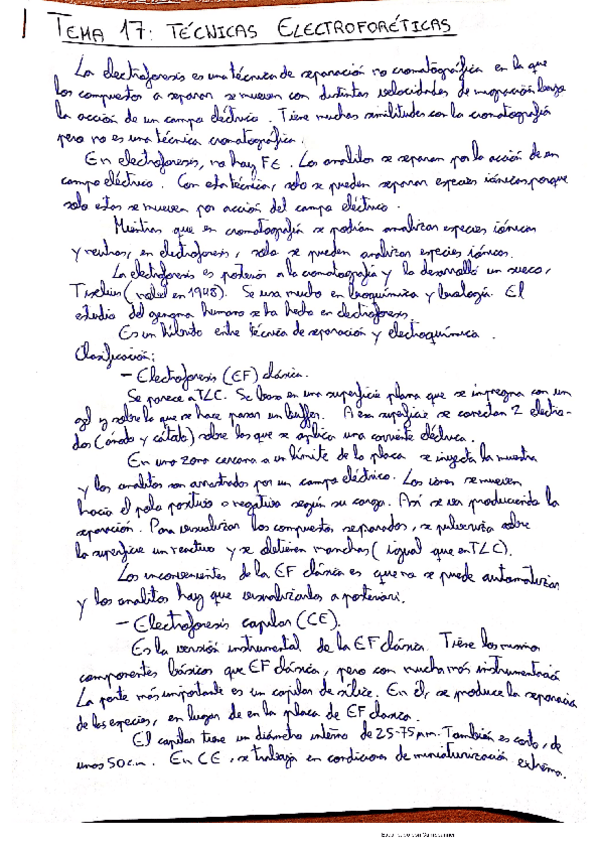 TEMA 17: TÉCNICAS ELECTROFORÉTICAS
La electroforesis es una técnica de separación no cromatográfica en la que
los compuestos a separar se mueven con distintas velocidades de migración bajo
la acción de un campo eléctrico. Tiene muchas similitudes con la cromatografía
pero no es una técnica cromatográfica.
En electroforesis, no hay FE. Los analitos se separan por la acción de un
campo eléctrico. Con esta técnica, solo se pueden separar especies iónicas porque
solo estas se mueven por acción del campo eléctrico.
Mientras que en cromatografía se podían analizar especies iónicas
y neutras, en electroforesis, solo se pueden analizar especies iónicas.
La electroforesis es posterior a la cromatografía y la desarrolló un sueco,
Tiselius (nobel en 1948). Se usa mucho en bioquímica y biología. El
estudio del genoma humano se ha hecho en electroforesis.
Es un híbrido entre técnica de separación y electroquímica.
Clasificación:
- Electroforesis (EF) clásica.
Se parece a TLC. Se basa en una superficie plana que se impregna con un
gel y sobre la que se hace pasar un buffer. A esa superficie se conectan 2 electro-
dos (ánodo y cátodo) sobre los que se aplica una corriente eléctrica.
En una zona cercana a un límite de la placa se inyecta la muestra
y los analitos son arrastrados por un campo eléctrico. Los iones se mueven
hacia el polo positivo o negativo según su carga. Así se va produciendo la
separación. Para visualizar los compuestos separados, se pulveriza sobre
la superficie un reactivo y se obtienen manchas (igual que en TLC).
Los inconvenientes de la EF clásica es que no se puede automatizar
y los analitos hay que visualizarlos a posteriori.
- Electroforesis capilar (CE).
Es la versión instrumental de la EF clásica. Tiene los mismos
componentes básicos que EF clásica, pero con mucha más instrumentación
La parte más importante es un capilar de sílice. En él, se produce la separación
de las especies, en lugar de en la placa de EF clásica.
El capilar tiene un diámetro interno de 25-75 µm. También es corto, de
unos 50 cm. En CE, se trabaja en condiciones de miniaturización extrema.